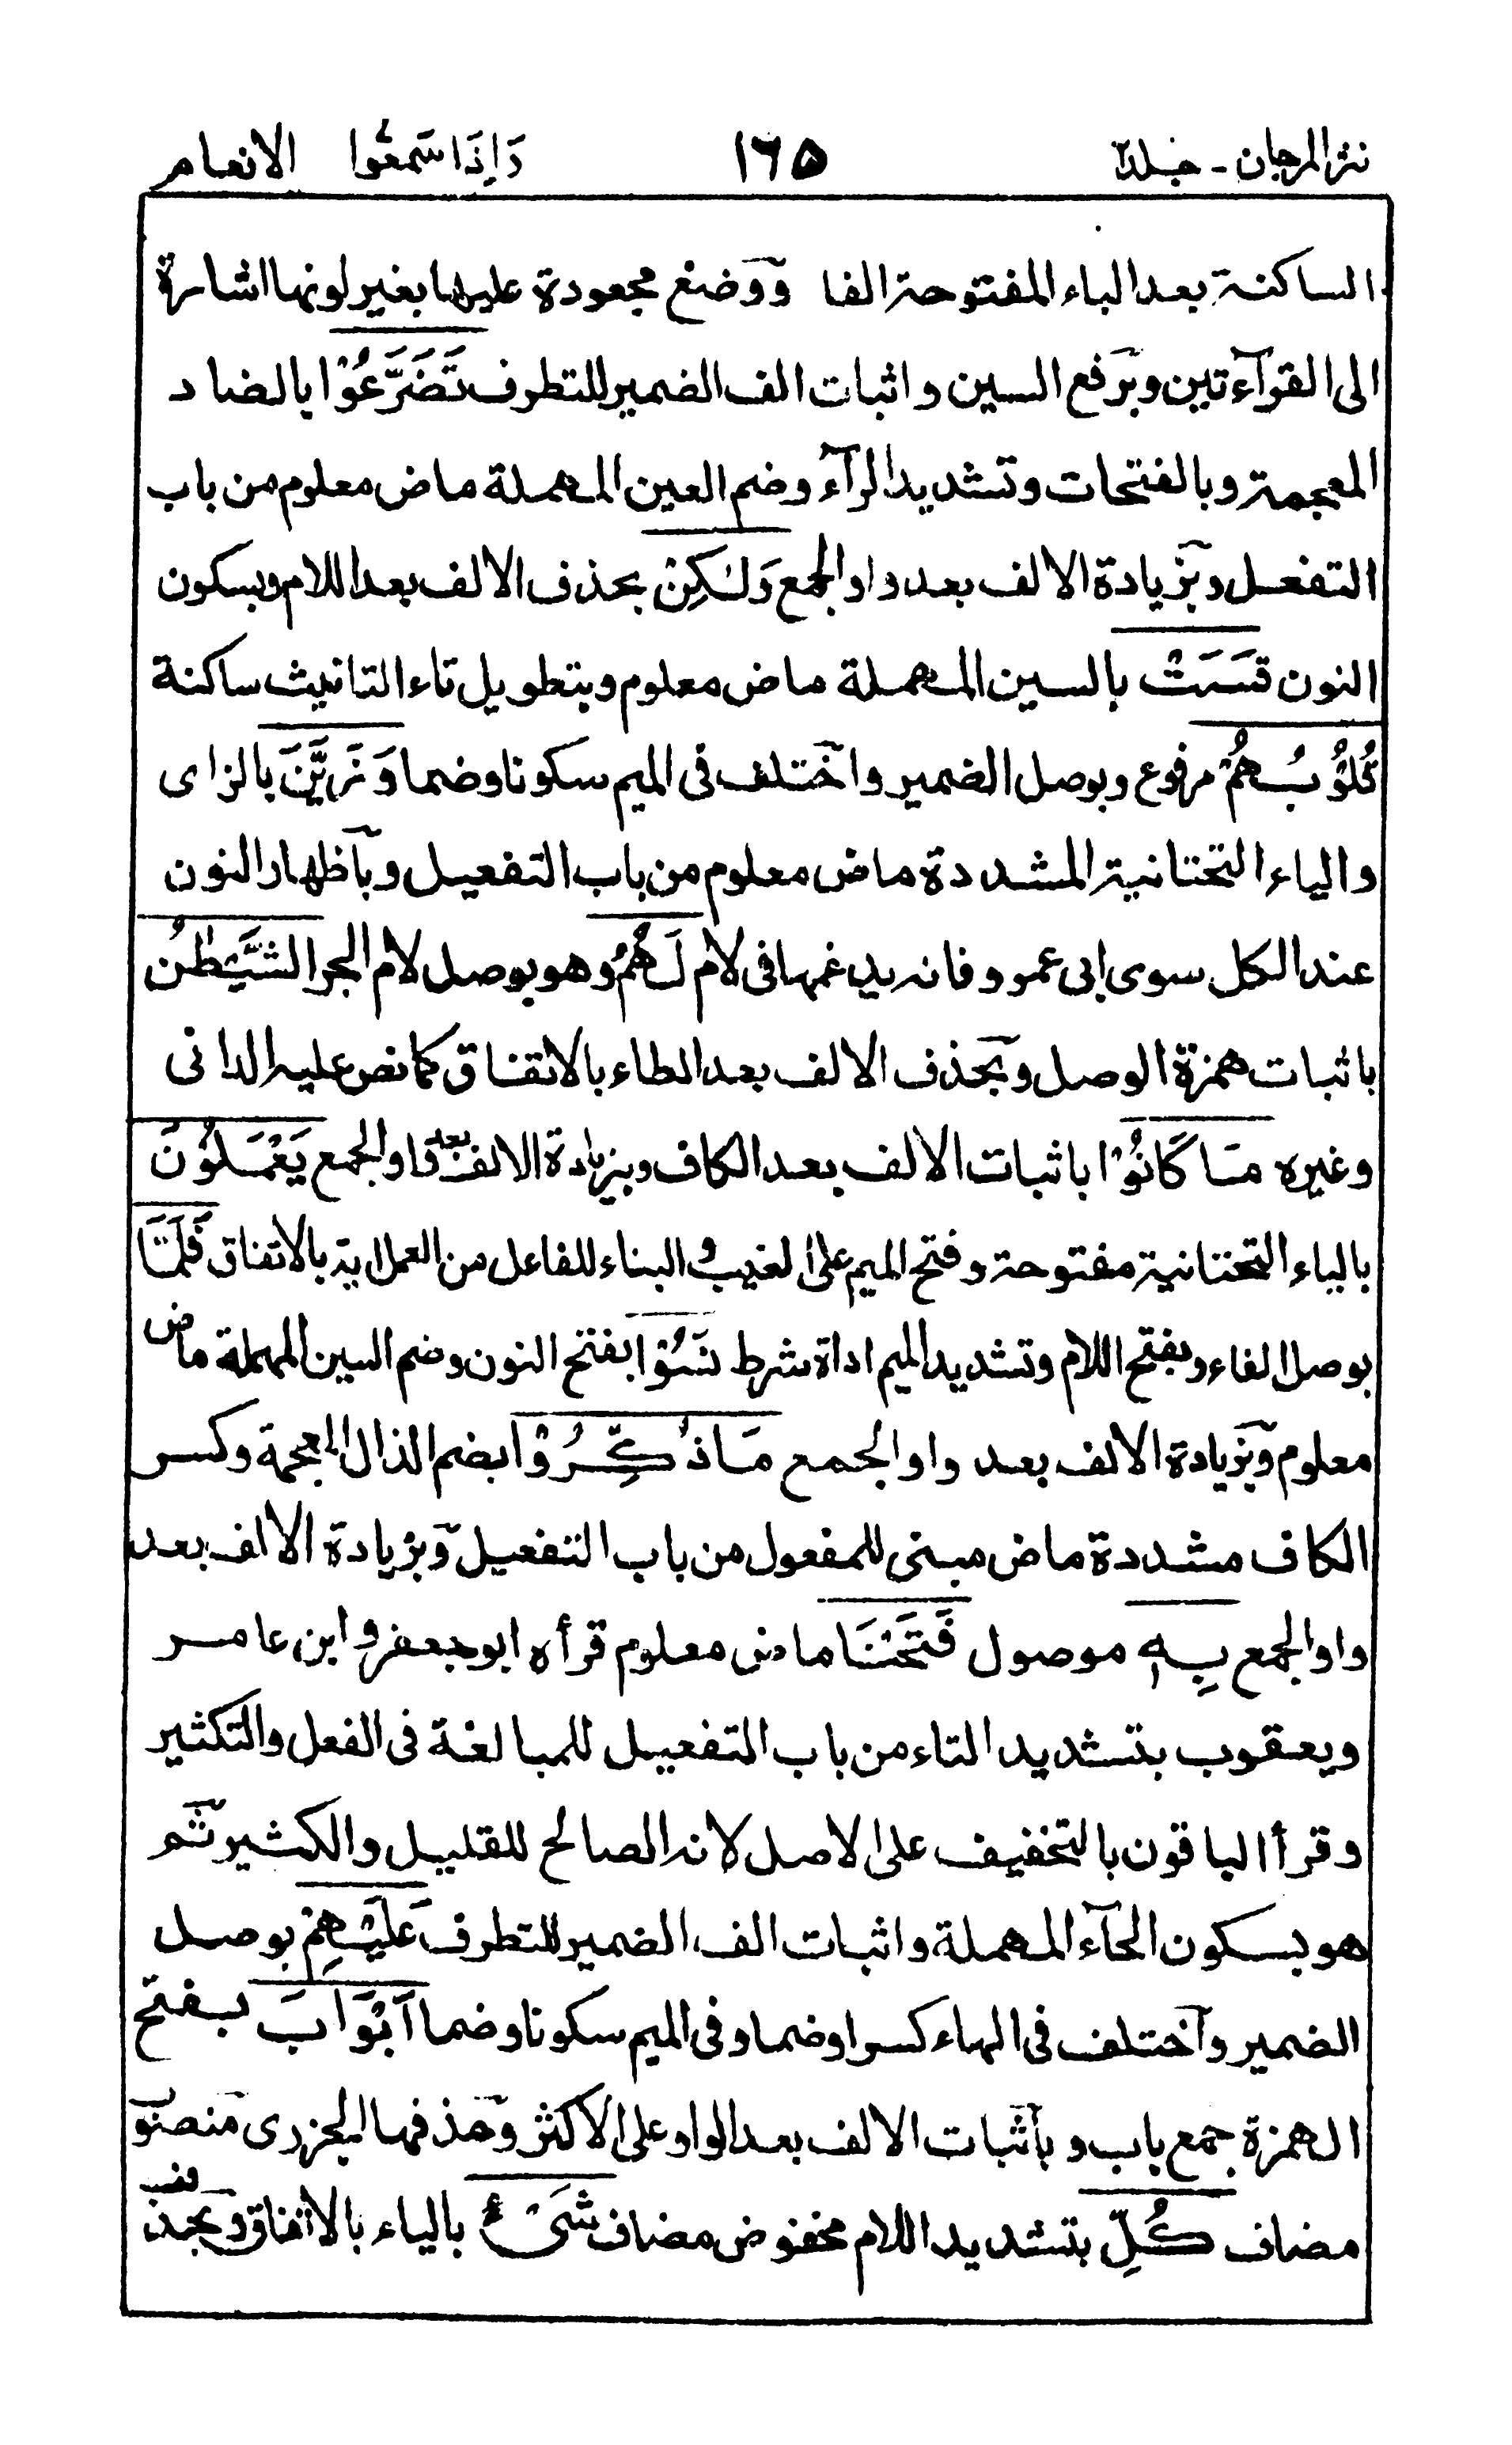 نثر المرجان - جلد٢ ١٦٥ وَاِذَا سَمِعُوا الانعام
الساكنة بعد الباء المفتوحة الفا ووضع مجعودة عليها بغير لونها اشارة
الى القرآءتين وبرفع السين واثبات الف الضمير للتطرف تَضَرَّعُوْا بالضاد
المعجمة وبالفتحات وتشديد الرآء وضم العين المهملة ماض معلوم من باب
التفعل وبزيادة الالف بعد واو الجمع وَلٰكِنْ بحذف الالف بعد اللام وبسكون
النون قَسَتْ بالسين المهملة ماض معلوم وبتطويل تاء التانيث ساكنة
قُلُوْبُهُمْ مرفوع وبوصل الضمير واختلف فى الميم سكونا وضما وَزَيَّنَ بالزاى
والياء التحتانية المشددة ماض معلوم من باب التفعيل وباظهار النون
عند الكل سوى ابى عمرو فانه يدغمها فى لام لَهُمُ وهو بوصل لام الجر الشَّيْطٰنُ
باثبات همزة الوصل وبحذف الالف بعد الطاء بالاتفاق كما نص عليه الدانى
وغيره مَا كَانُوْا باثبات الالف بعد الكاف وبزيادة الالف بعد واو الجمع يَعْمَلُوْنَ
بالياء التحتانية مفتوحة وفتح الميم على الغيب والبناء للفاعل من العمل اية بالاتفاق فَلَمَّا
بوصل الفاء وبفتح اللام وتشديد الميم اداة شرط نَسُوْا بفتح النون وضم السين المهملة ماض
معلوم وبزيادة الالف بعد واو الجمع مَا ذُكِّرُوْا بضم الذال المعجمة وكسر
الكاف مشددة ماض مبنى للمفعول من باب التفعيل وبزيادة الالف بعد
واو الجمع بِهٖ موصول فَتَحْنَا ماض معلوم قرأه ابو جعفر وابن عامر
ويعقوب بتشديد التاء من باب التفعيل للمبالغة فى الفعل والتكثير
وقرأ الباقون بالتخفيف على الاصل لانه الصالح للقليل والكثير ثم
هو بسكون الحآء المهملة واثبات الف الضمير للتطرف عَلَيْهِمْ بوصل
الضمير واختلف فى الهاء كسرا وضما وفى الميم سكونا وضما اَبْوَابَ بفتح
الهمزة جمع باب وباثبات الالف بعد الواو على الاكثر وحذفها الجزرى منصوب
مضاف كُلِّ بتشديد اللام مخفوض مضاف شَىْءٍ بالياء بالاتفاق وبحذف